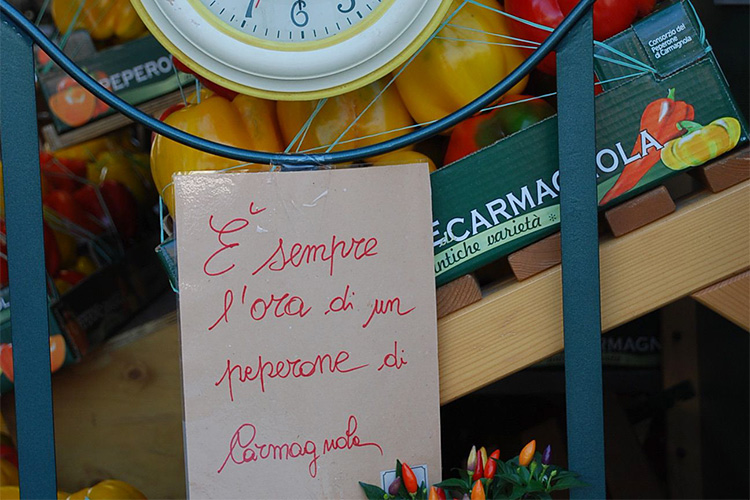 7 6 5
PEPERO
Consorzio del
Peperone
di Carmagnola
E CARMAGNOLA
antiche varietà
È sempre
l'ora di un
peperone di
Carmagnola
CARMAGN